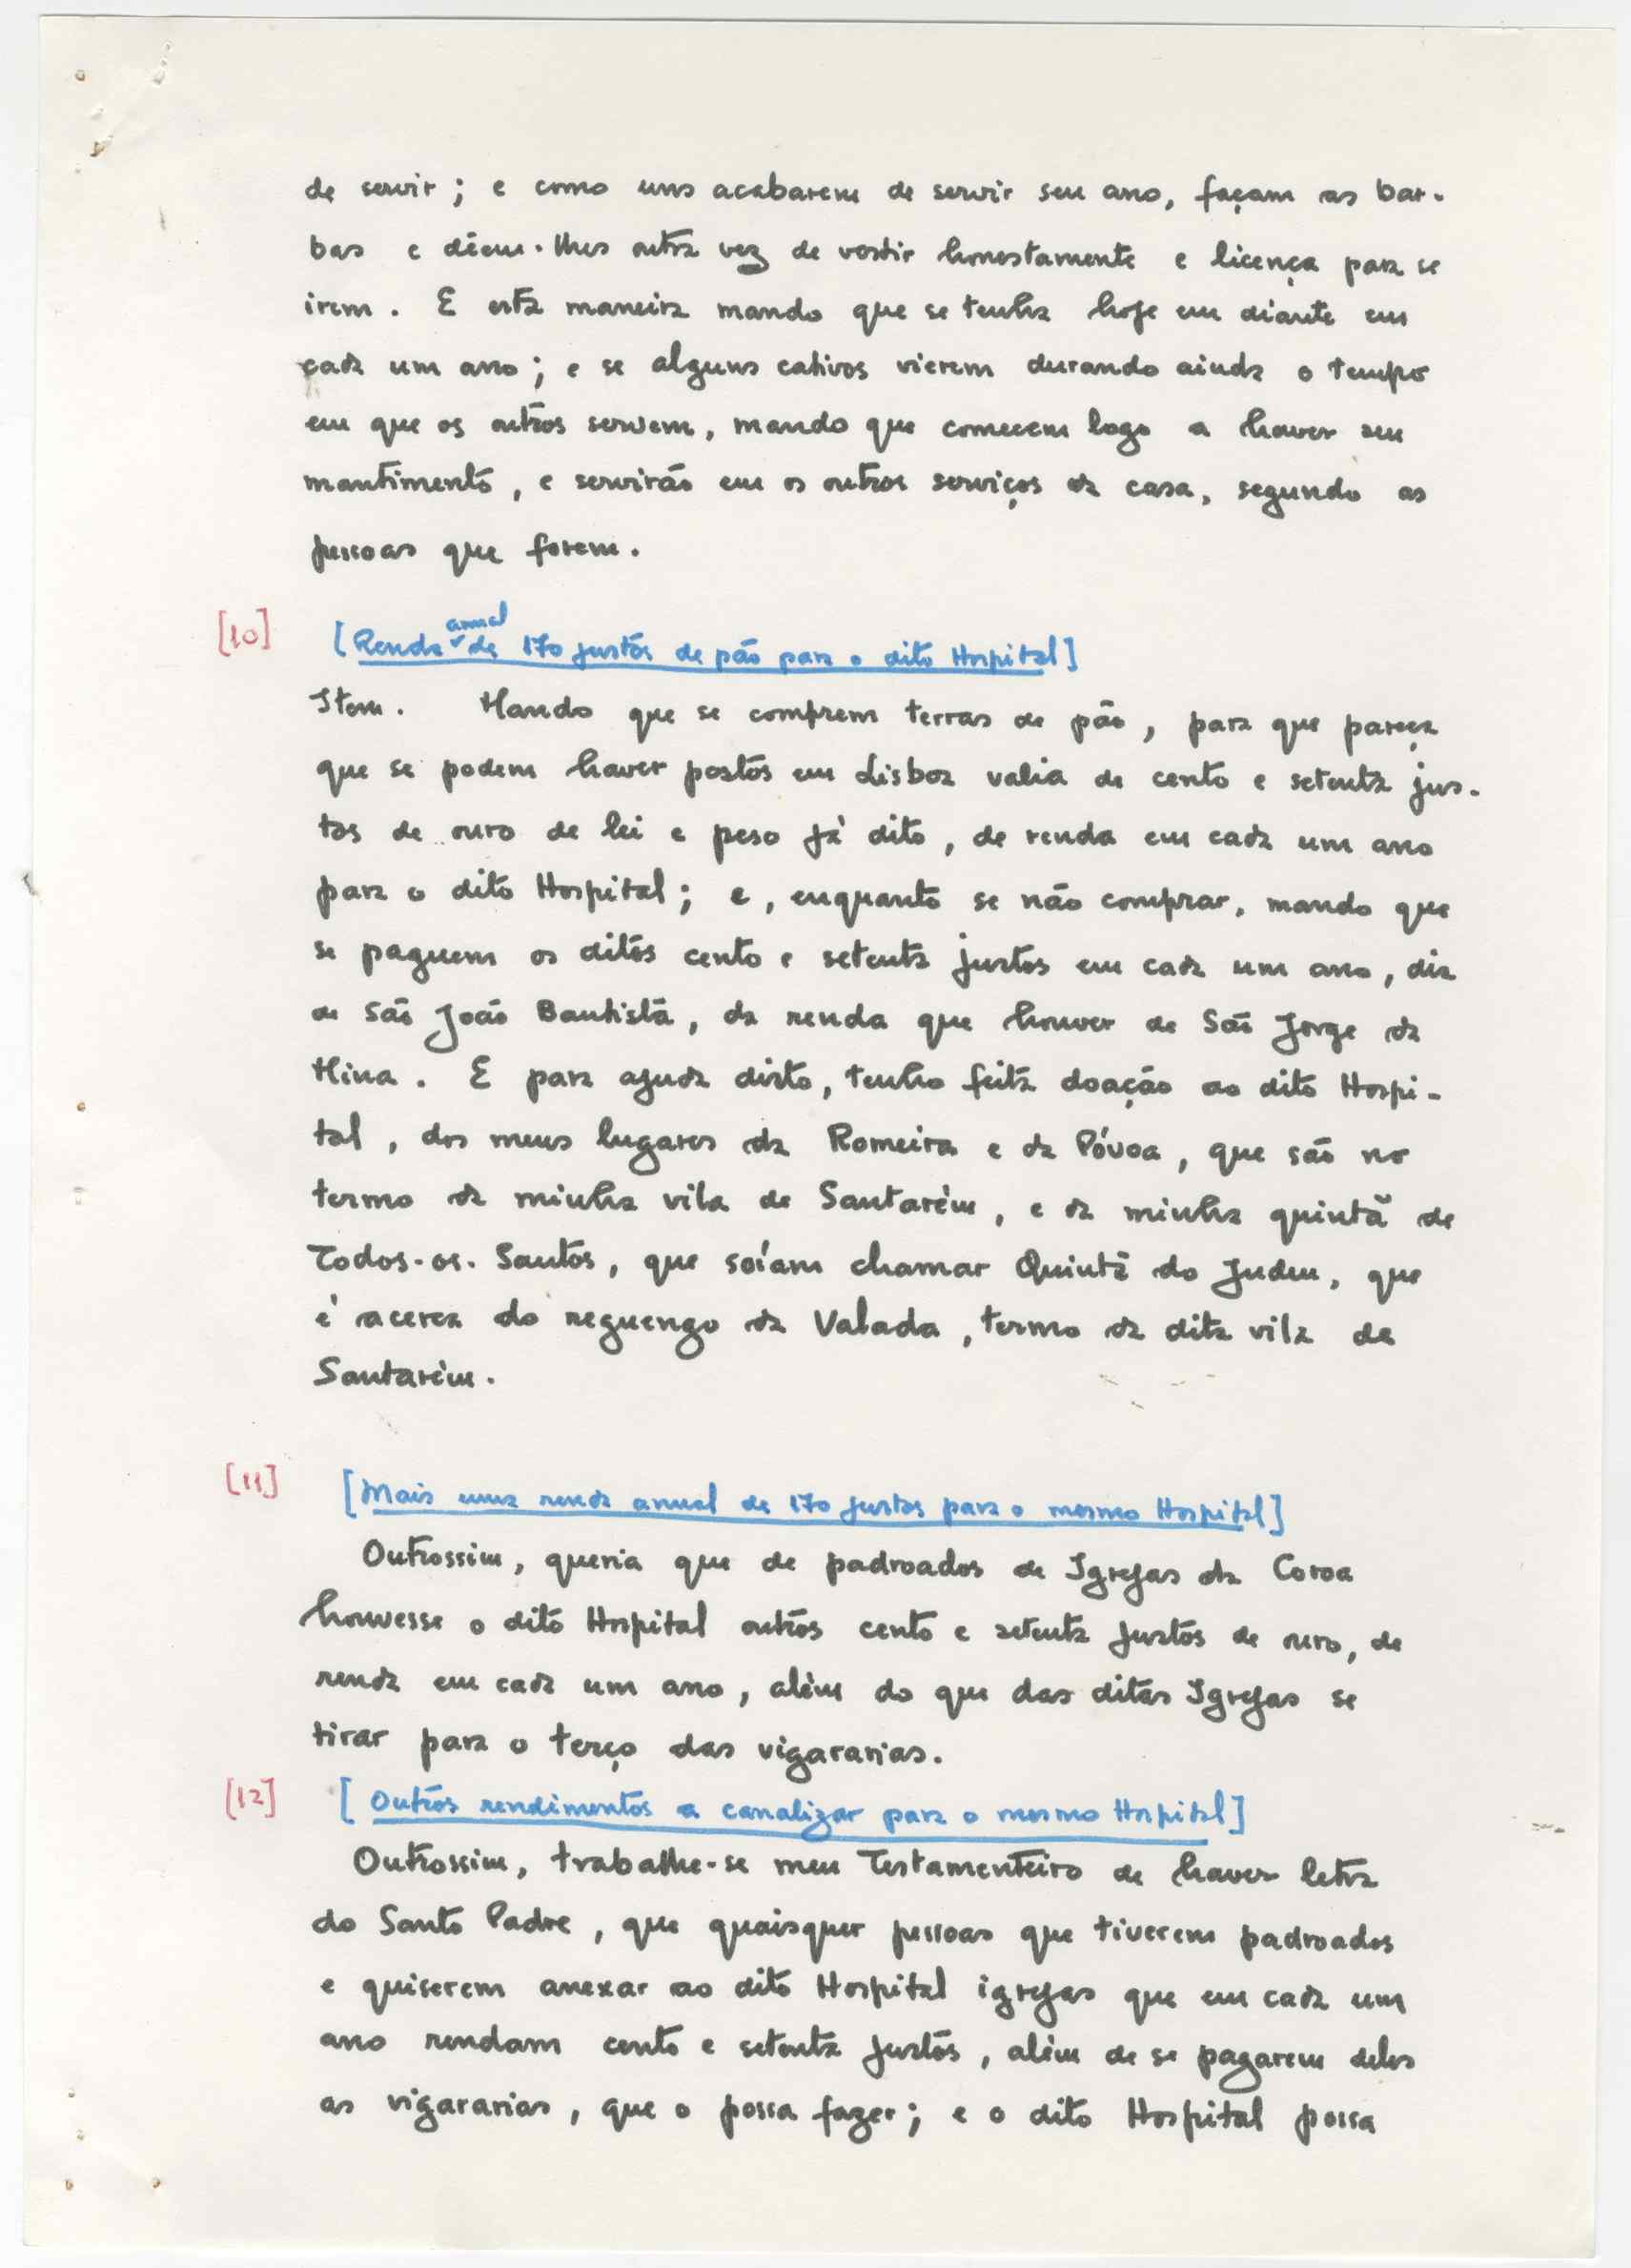 de servir; e como uns acabarem de servir seu ano, façam as bar-
bas e dêem-lhes outra vez de vestir honestamente e licença para se
irem. E esta maneira mando que se tenha hoje em diante em
cada um ano; e se alguns cativos vierem durando ainda o tempo
em que os outros servem, mando que comecem logo a haver seu
mantimento, e servirão em os outros serviços da casa, segundo as
pessoas que forem.
[10] [Renda anual de 170 justos de pão para o dito Hospital]
Item. Mando que se comprem terras de pão, para que pareça
que se podem haver postos em Lisboa valia de cento e setenta jus-
tos de ouro de lei e peso já dito, de renda em cada um ano
para o dito Hospital; e, enquanto se não comprar, mando que
se paguem os ditos cento e setenta justos em cada um ano, dia
de São João Bautista, da renda que houver de São Jorge da
Mina. E para ajuda disto, tenho feita doação ao dito Hospi-
tal, dos meus lugares da Romeira e da Póvoa, que são no
termo da minha vila de Santarém, e da minha quintã de
Todos-os-Santos, que soíam chamar Quintã do Judeu, que
é acerca do reguengo da Valada, termo da dita vila de
Santarém.
[11] [Mais uma renda anual de 170 justos para o mesmo Hospital]
Outrossim, queria que de padroados de Igrejas da Coroa
houvesse o dito Hospital outros cento e setenta justos de ouro, de
renda em cada um ano, além do que das ditas Igrejas se
tirar para o terço das vigararias.
[12] [Outros rendimentos a canalizar para o mesmo Hospital]
Outrossim, trabalhe-se meu Testamenteiro de haver letra
do Santo Padre, que quaisquer pessoas que tiverem padroados
e quiserem anexar ao dito Hospital igrejas que em cada um
ano rendam cento e setenta justos, além de se pagarem delos
as vigararias, que o possa fazer; e o dito Hospital possa